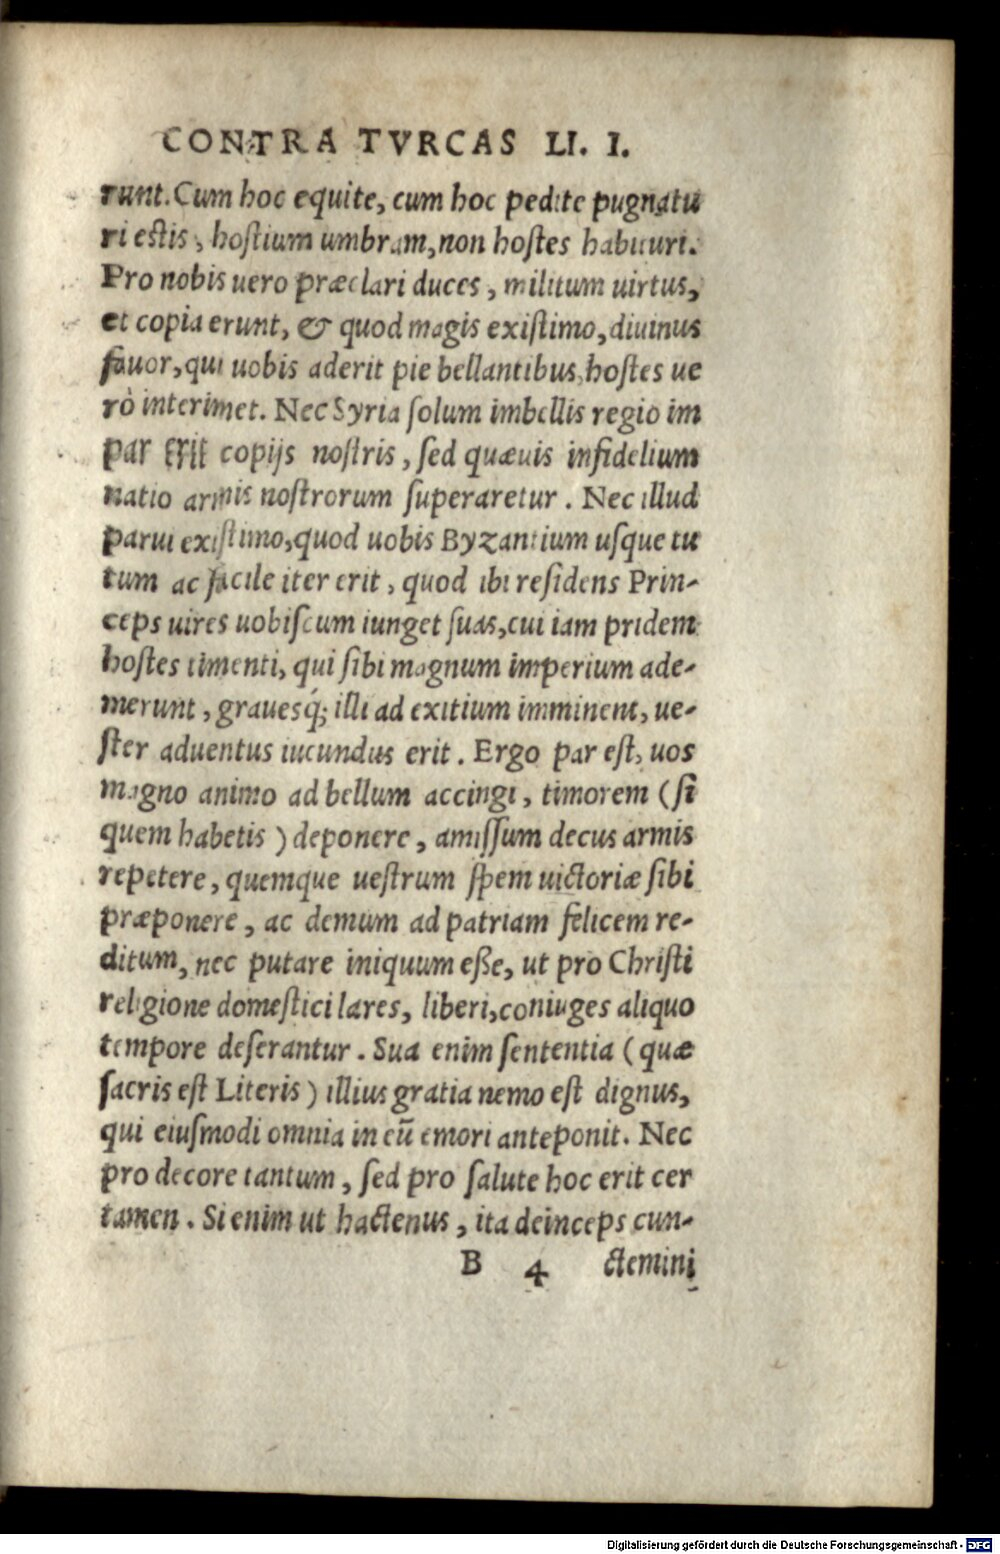 CONTRA TVRCAS LI. I.
runt. Cum hoc equite, cum hoc pedite pugnatu
ri estis, hostium umbram, non hostes habituri.
Pro nobis uero præclari duces, militum uirtus,
et copia erunt, & quod magis existimo, diuinus
fauor, qui uobis aderit pie bellantibus, hostes ue
rò interimet. Nec Syria solum imbellis regio im
par erit copijs nostris, sed quæuis infidelium
natio armis nostrorum superaretur. Nec illud
parui existimo, quod uobis Byzantium usque tu
tum ac facile iter erit, quod ibi residens Prin-
ceps uires uobiscum iunget suas, cui iam pridem
hostes timenti, qui sibi magnum imperium ade-
merunt, grauesq́; illi ad exitium imminent, ue-
ster aduentus iucundus erit. Ergo par est, uos
magno animo ad bellum accingi, timorem (si
quem habetis) deponere, amissum decus armis
repetere, quemque uestrum spem uictoriæ sibi
præponere, ac demum ad patriam felicem re-
ditum, nec putare iniquum eße, ut pro Christi
religione domestici lares, liberi, coniuges aliquo
tempore deserantur. Sua enim sententia (quæ
sacris est Literis) illius gratia nemo est dignus,
qui eiusmodi omnia in eū emori anteponit. Nec
pro decore tantum, sed pro salute hoc erit cer
tamen. Si enim ut hactenus, ita deinceps cun-
B 4 ctemini
Digitalisierung gefördert durch die Deutsche Forschungsgemeinschaft - DFG